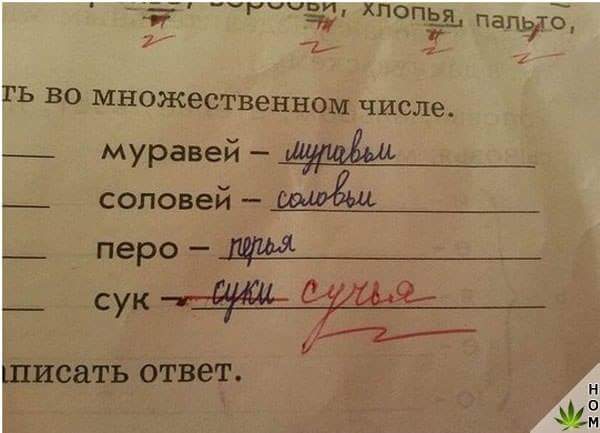 воробьи, хлопья, пальто,
ть во множественном числе.
муравей – муравьи
соловей – соловьи
перо – перья
сук – суки сучья
писать ответ.
НОМ